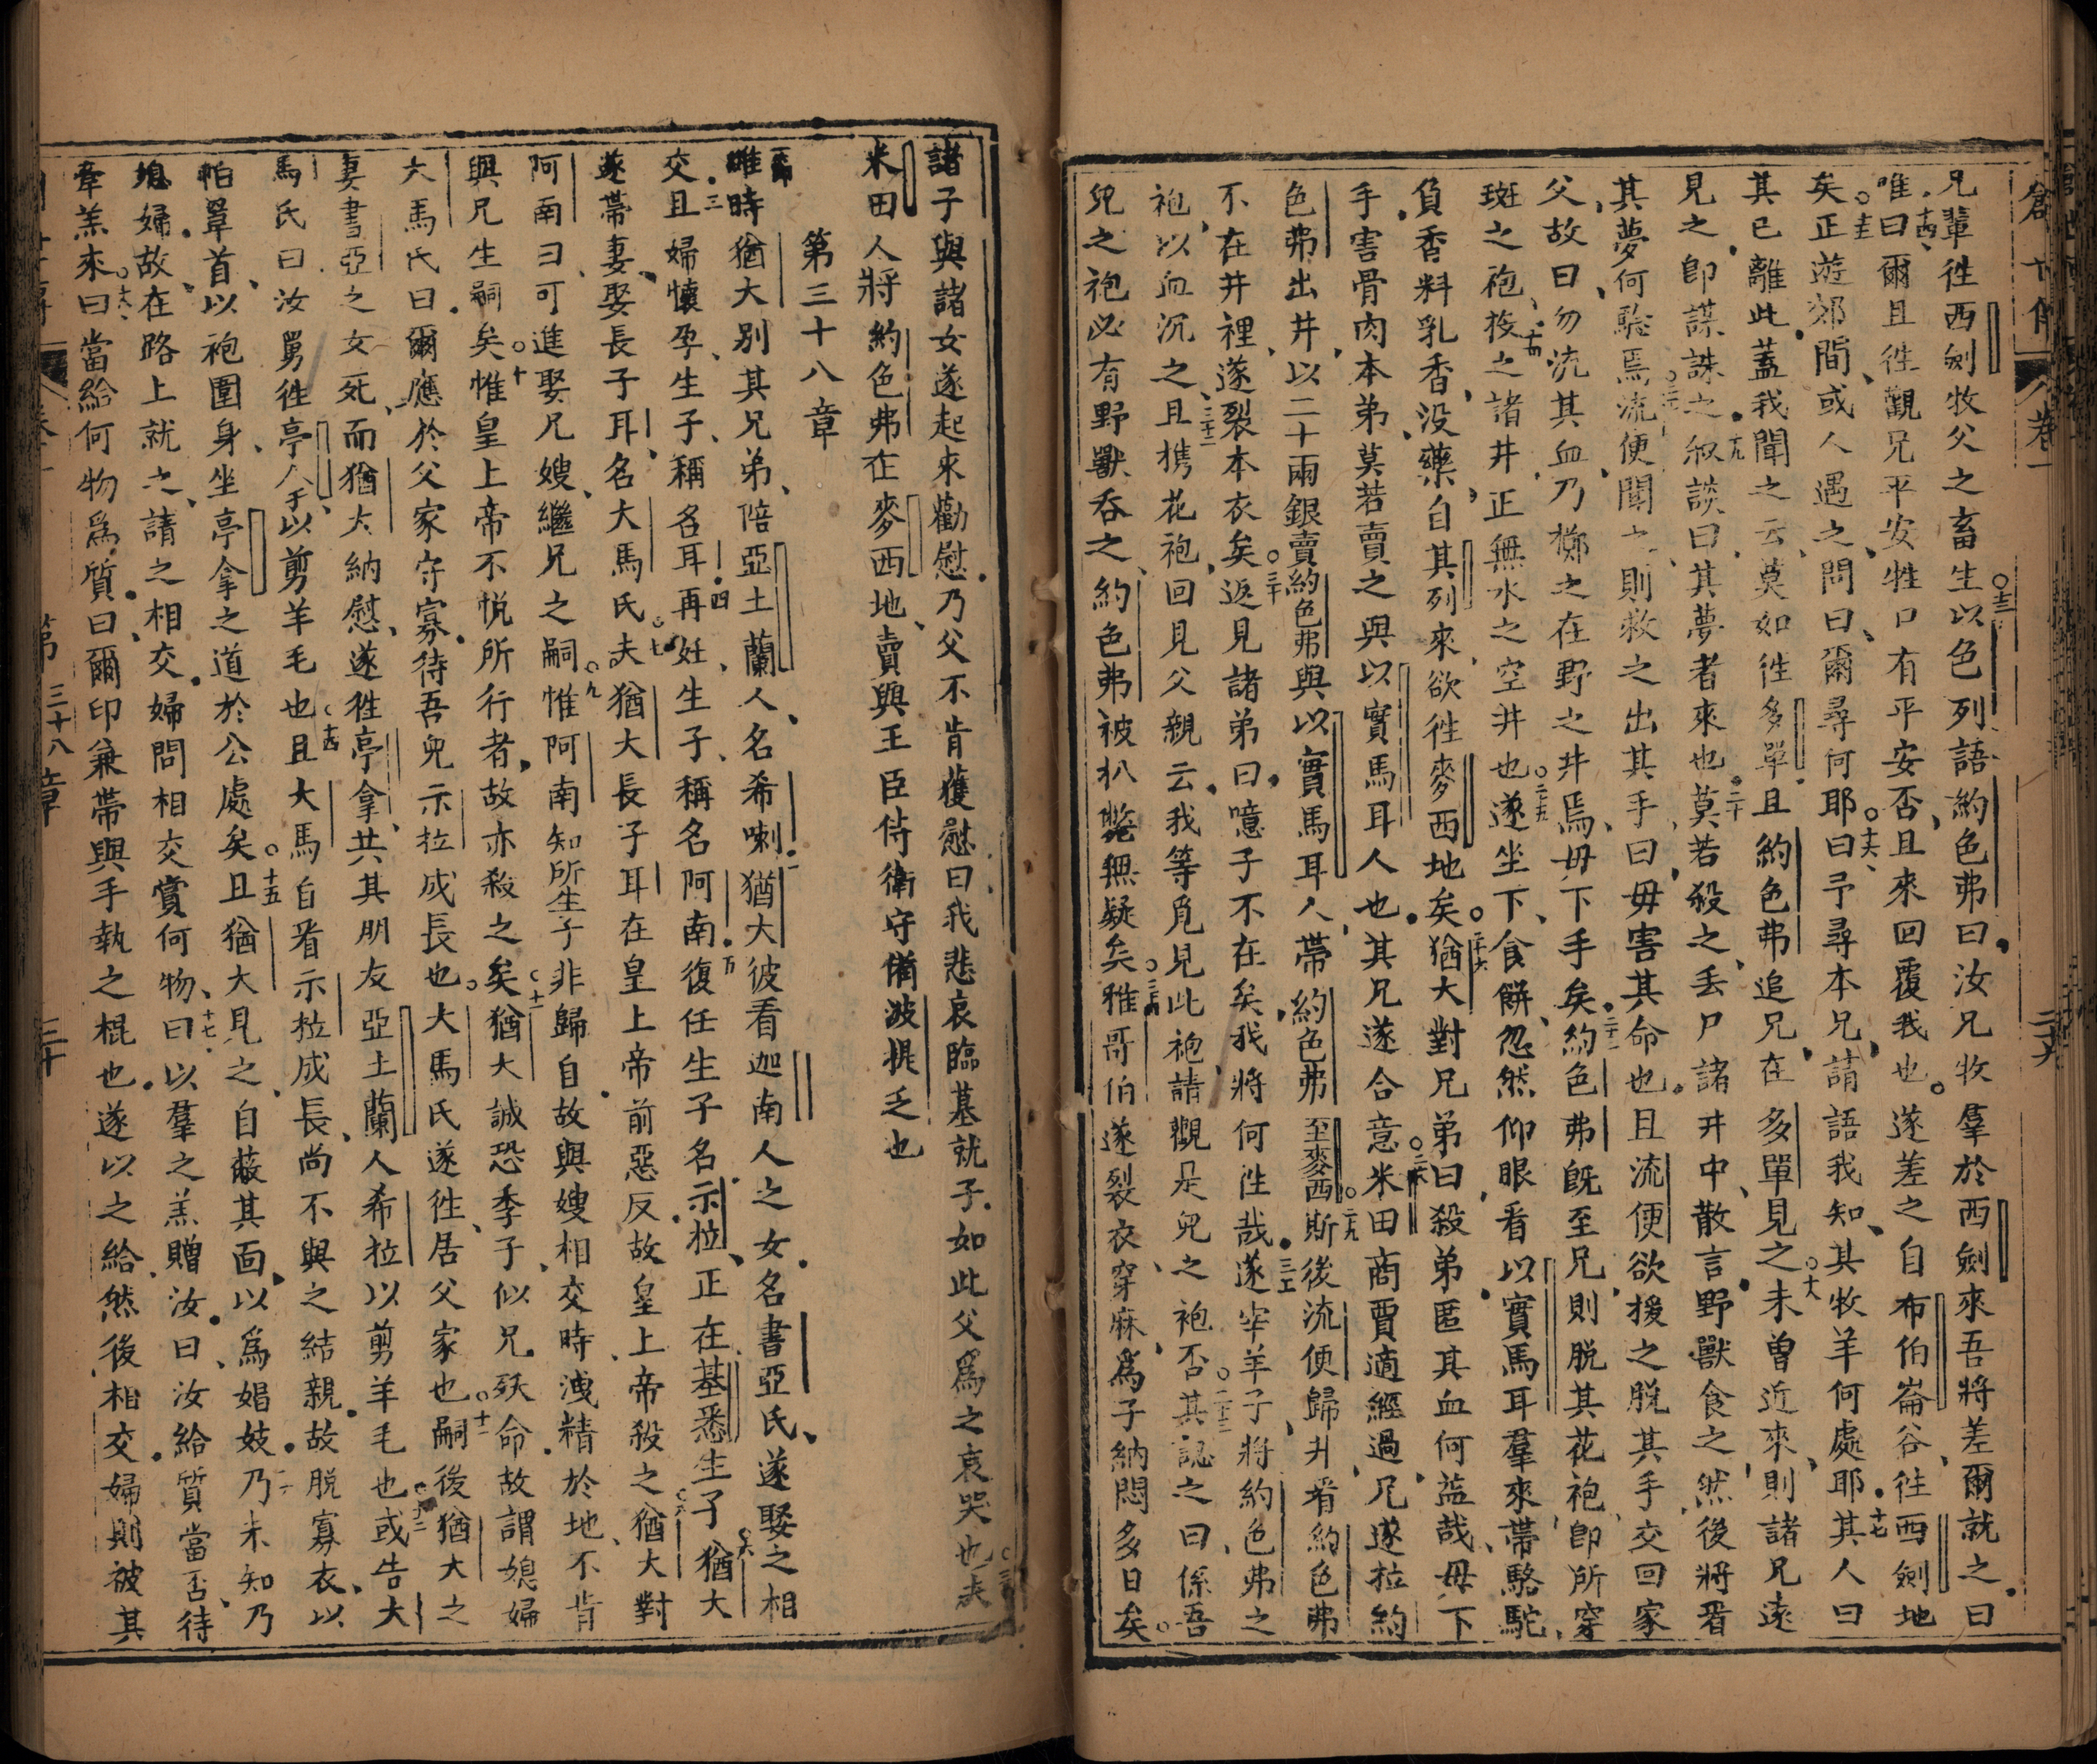 兄輩徃西劍牧父之畜生以色列語約色弗曰汝兄牧羣於西劍來吾將差爾就之曰
唯曰爾且徃觀兄平安牲口有平安否且來回覆我也遂差之自布伯崙谷徃西劍地
矣正遊郊間或人遇之問曰爾尋何耶曰予尋本兄請語我知其牧羊何處耶其人曰
其已離此蓋我聞之云莫如徃多單且約色弗追兄在多單見之未曾近來則諸兄遠
見之卽謀誅之叔談曰其夢者來也莫若殺之丟尸諸井中散言野獸食之然後將看
其夢何驗焉流便聞之則救之出其手曰毋害其命也且流便欲援之脱其手交回家
父故曰勿流其血乃擲之在野之井焉毋下手矣約色弗旣至兄則脱其花袍卽所穿
斑之袍投之諸井正無水之空井也遂坐下食餅忽然仰眼看以實馬耳羣來帶駱駝
負香料乳香没藥自其列來欲徃麥西地矣猶大對兄弟曰殺弟匿其血何益哉毋下
手害骨肉本弟莫若賣之與以實馬耳人也其兄遂合意米田商賈適經過兄遂拉約
色弗出井以二十兩銀賣約色弗與以實馬耳人帶約色弗至麥西斯後流便歸井看約色弗
不在井裡遂裂本衣矣返見諸弟曰噫子不在矣我將何徃哉遂宰羊子將約色弗之
袍以血沉之且携花袍回見父親云我等覓見此袍請觀是兒之袍否其認之曰係吾
兒之袍必有野獸吞之約色弗被扒斃無疑矣雅哥伯遂裂衣穿麻爲子納悶多日矣
諸子與諸女遂起來勸慰乃父不肯獲慰曰我悲哀臨墓就子如此父爲之哀哭也夫
米田人將約色弗在麥西地賣與王臣侍衛守備波提乏也
第三十八章
維時猶大别其兄弟陪亞土蘭人名希喇猶大彼看迦南人之女名書亞氏遂娶之相
交且婦懷孕生子稱名耳再妊生子稱名阿南復任生子名示拉正在基悉生子猶大
遂帶妻娶長子耳名大馬氏夫猶大長子耳在皇上帝前惡反故皇上帝殺之猶大對
阿南曰可進娶兄嫂繼兄之嗣惟阿南知所生子非歸自故與嫂相交時洩精於地不肯
與兄生嗣矣惟皇上帝不悦所行者故亦殺之矣猶大誠恐季子似兄殀命故謂媳婦
大馬氏曰爾應於父家守寡待吾兒示拉成長也大馬氏遂徃居父家也嗣後猶大之
妻書亞之女死而猶大納慰遂徃亭拿共其朋友亞土蘭人希拉以剪羊毛也或告大
馬氏曰汝舅徃亭人手以剪羊毛也且大馬自看示拉成長尚不與之結親故脱寡衣以
帕罩首以袍圍身坐亭拿之道於公處矣且猶大見之自蔽其面以爲娼妓乃未知乃
媳婦故在路上就之請之相交婦問相交賞何物曰以羣之羔贈汝曰汝給質當否待
韋羔來曰當給何物爲質曰爾印兼帶與手執之棍也遂以之給然後相交婦則被其